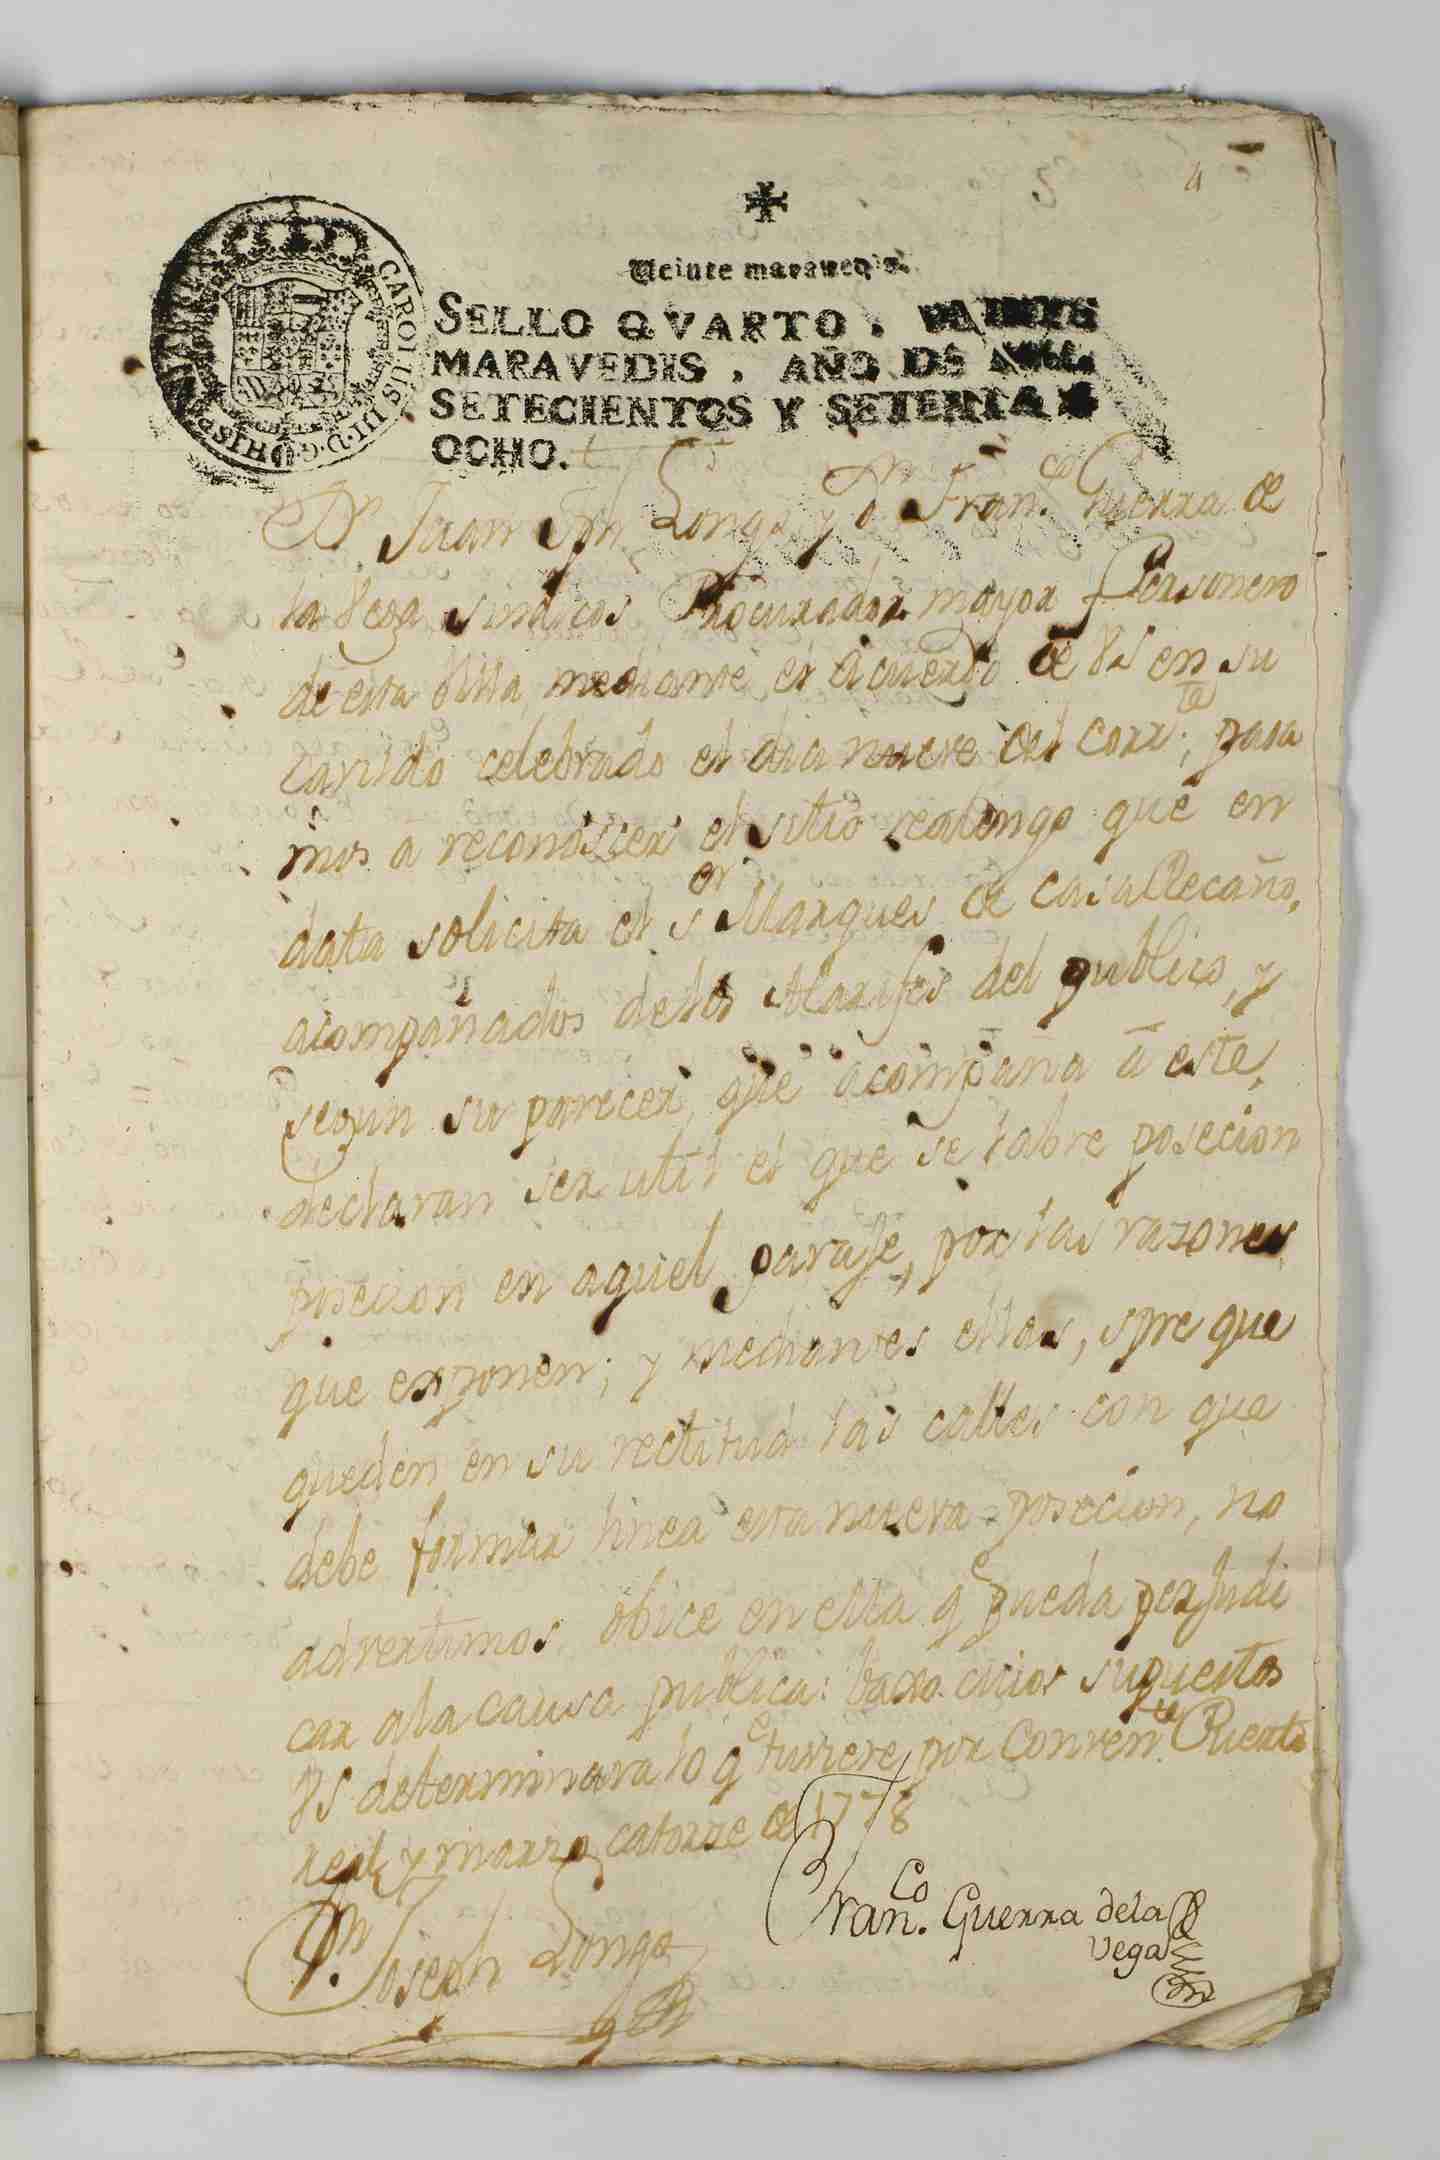 4
Veinte maravedis.
SELLO QVARTO, VEINTE
MARAVEDIS, AÑO DE MIL
SETECIENTOS Y SETENTA Y
OCHO.
CAROLUS III D. G. HISP
Dn Juan Jph Longo, y Dn Franco Guerra de
la Vega sindicos Procurador mayor y Personero
de esta Villa, mediante el Acuerdo de VS en su
cavildo celebrado el dia nueve del corrte, pasa
mos a reconoscer el sitio realengo que en
data solicita el sor Marques de Casa Recaño,
acompañados delos Alarifes del publico, y
segun su parecer, que acompaña à este,
declaran ser util el que se labre posecion
posecion en aquel paraje, por las razones
que exponen; y mediantes ellas, spre que
queden en su rectitud las calles con que
debe formar linea esta nueva posecion, no
advertimos obice en ella q pueda perjudi
car ala causa publica: baxo cuios supuestos
VS determinara lo qe tuviere por convente Puerto
real y marzo catorze de 1778
Dn Joseph Longo
Franco. Guerra dela
Vega